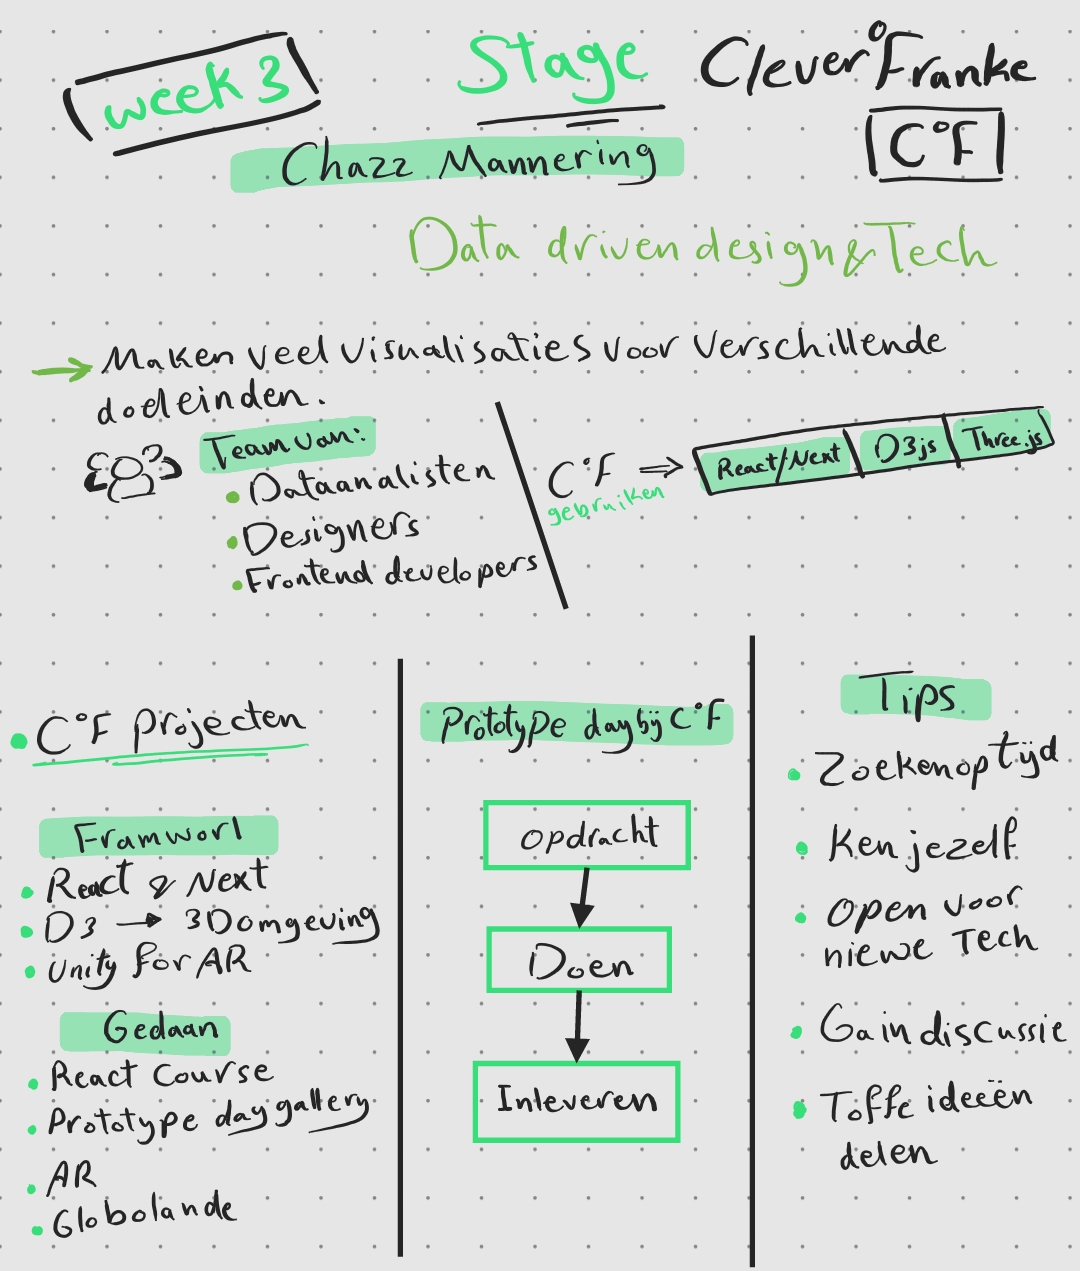 week 3
Stage
Clever°Franke
C°F
Chazz Mannering
Data driven design & Tech
→ Maken veel visualisaties voor verschillende
doeleinden.
Team van:
• Dataanalisten
• Designers
• Frontend developers
C°F ⇒ React/Next D3js Three.js
gebruiken
• C°F Projecten
Framworl
• React & Next
• D3 → 3D omgeving
• Unity for AR
Gedaan
• React Course
• Prototype day gallery
• AR
• Globolande
Prototype day bij C°F
opdracht
Doen
Inleveren
Tips
• Zoeken op tijd
• Ken je zelf
• open voor
niewe Tech
• Ga in discussie
• Toffe ideeën
delen